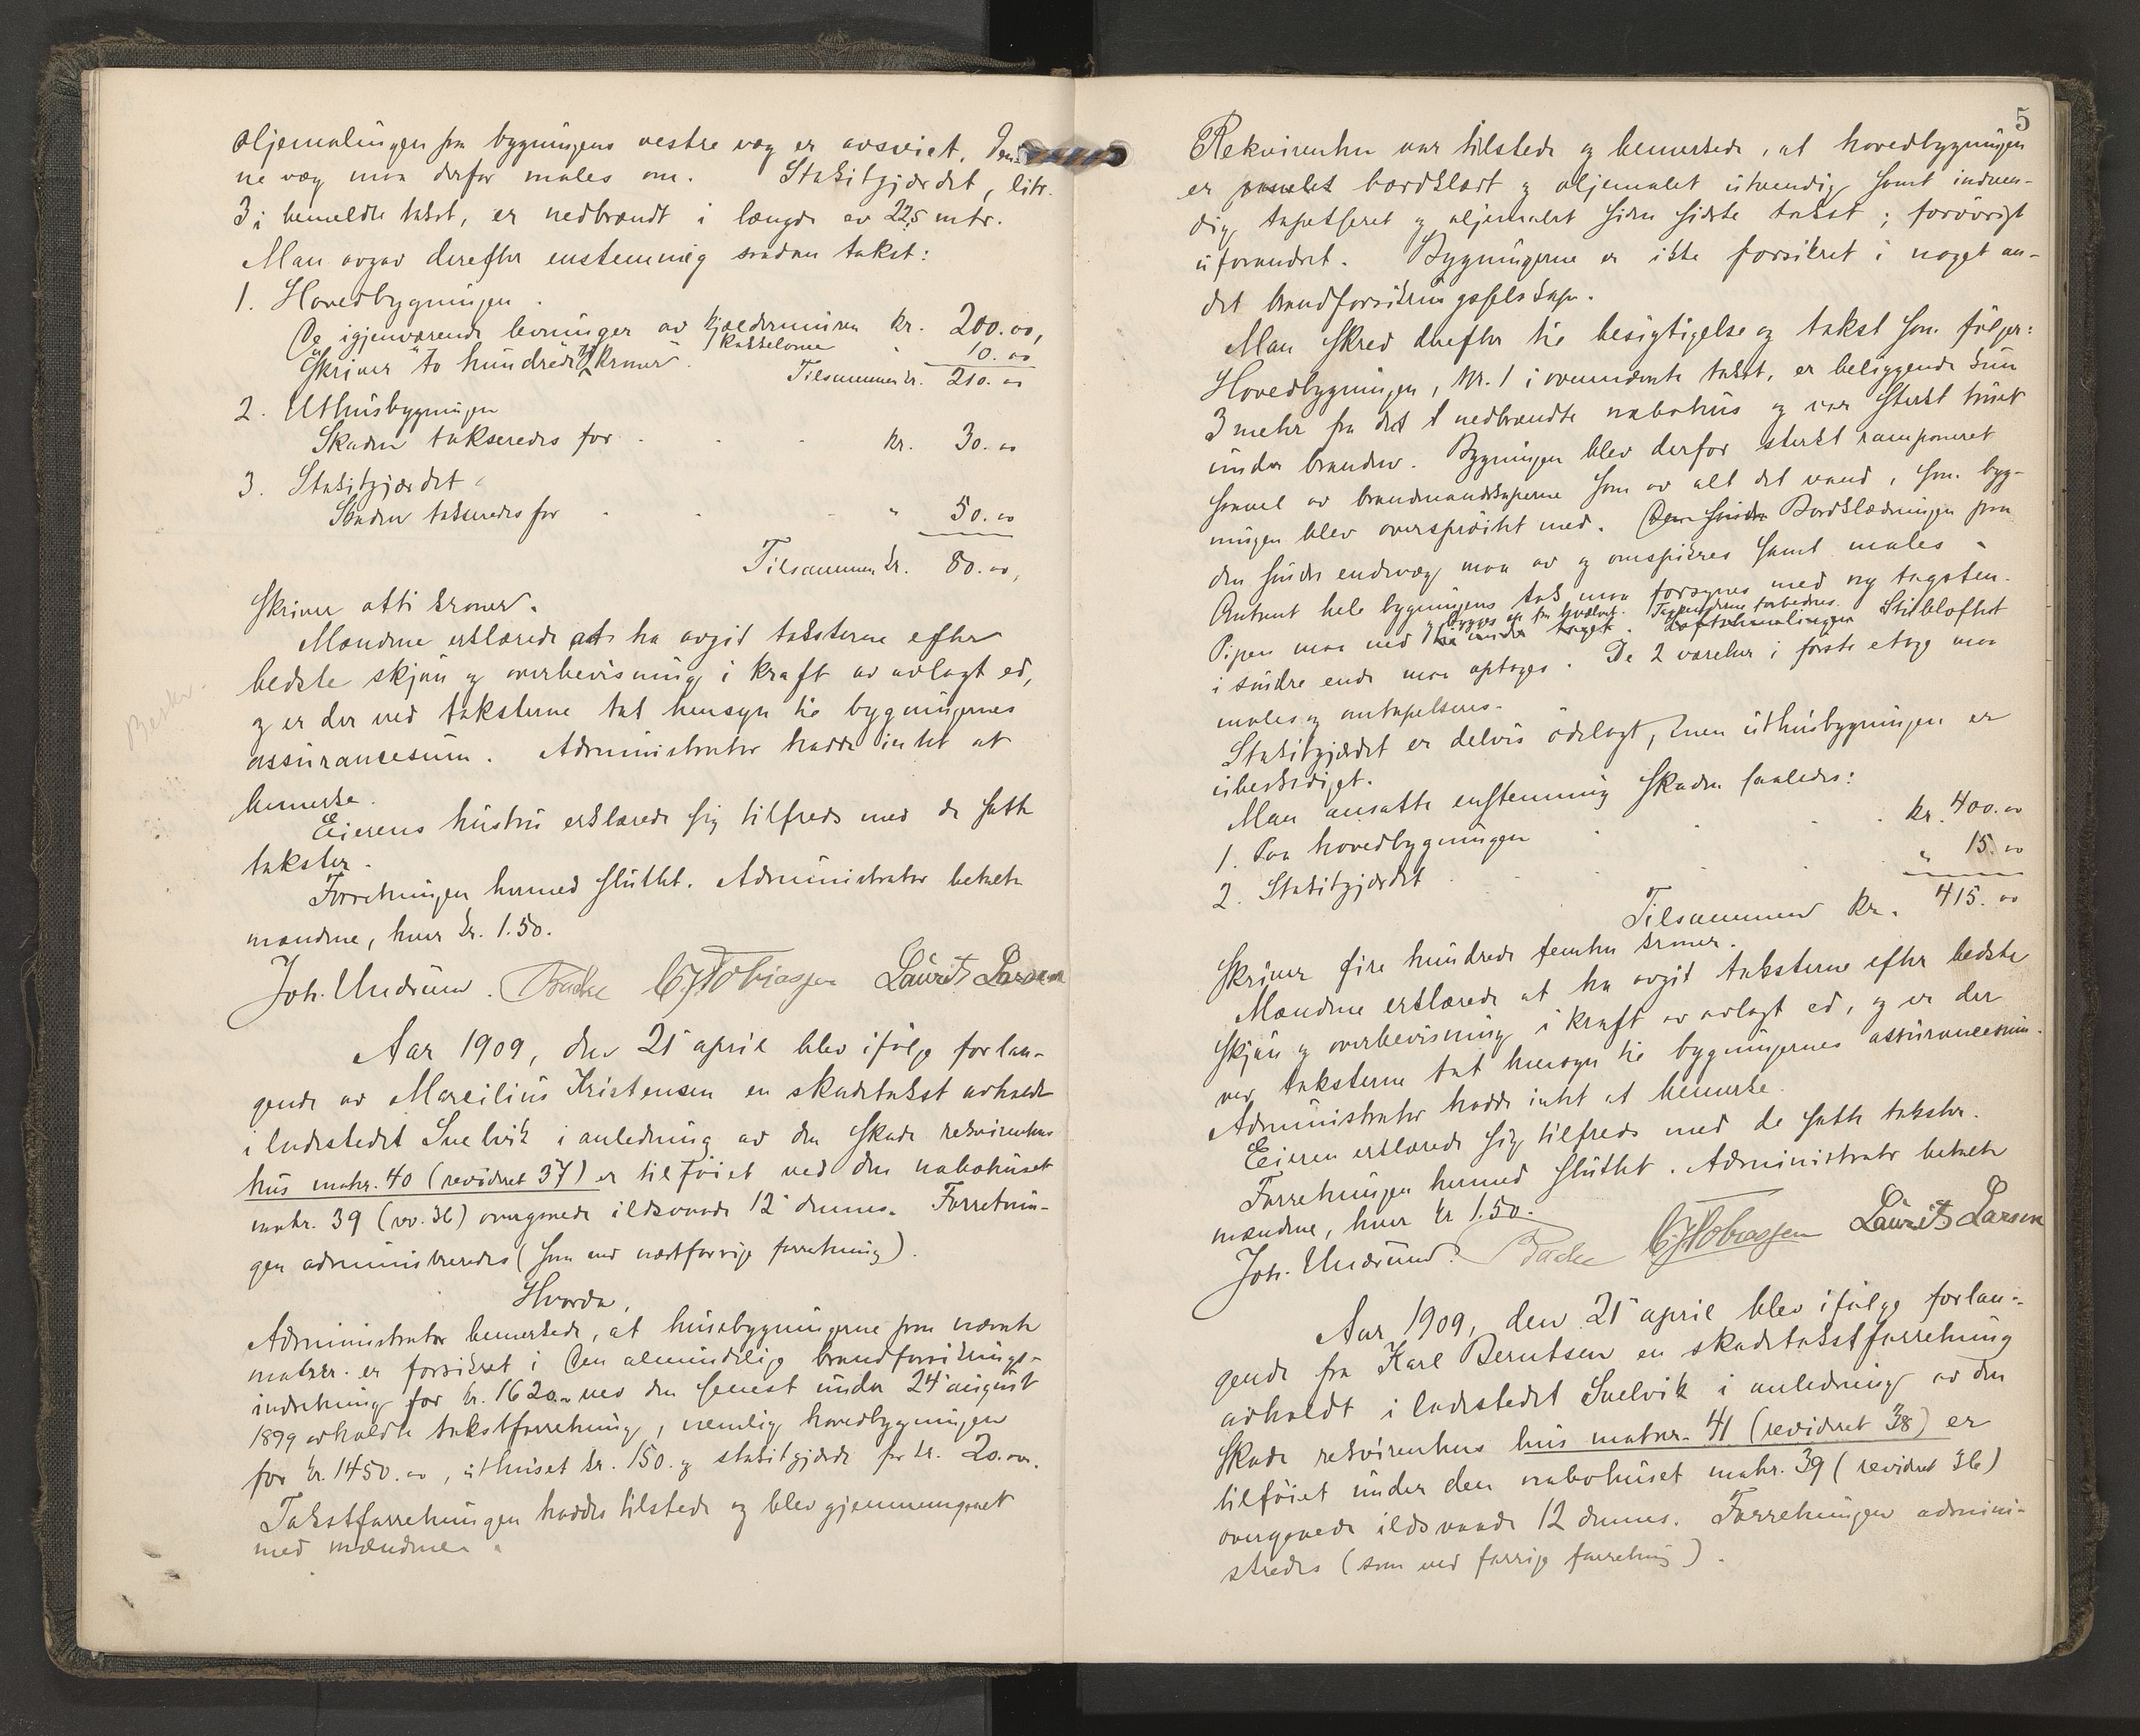 oljemalingen fra bygningens vestre væg er avsviet. Den-
ne væg maa derfor males om. Stakitgjærdet, litr.
3 i bemeldte takst, er nedbrændt i længde av 22,5 mtr.
Man avgav derefter enstemmig saadan takst:
1. Hovedbygningen.
De igjenværende levninger av kjældermuren kr. 200.00,
kakkelovne " 10.00
Skriver to hundrede ti kroner. Tilsammen kr. 210.00
2. Uthusbygningen
Skaden takseredes for kr. 30.00
3. Stakitgjærdet
Skaden takseredes for " 50.00
Tilsammen kr. 80.00,
Skriver otti kroner.
Mændene erklærede at ha avgit taksterne efter
bedste skjøn og overbevisning i kraft av avlagt ed,
og er der ved taksterne tat hensyn til bygningernes
assurancesum. Administrator hadde intet at
bemerke.
Eierens hustru erklærede sig tilfreds med de satte
takster.
Forretningen hermed sluttet. Administrator betalte
mændene, hver kr. 1.50.
Joh. Undrum. Backe C. J. Tobiassen Laurits Larsen
Beskr.
Aar 1909, den 21 april blev ifølge forlan-
gende av Marcilius Kristensen en skadetakst avholdt
i ladestedet Svelvik i anledning av den skade rekvirentens
hus matr. 40 (revideret 37) er tilføiet ved den nabohuset
matr. 39 (rev. 36) overgaaede ildsvaade 12 dennes. Forretnin-
gen administreredes (som ved næstforrige forretning).
Hvorda,
Administrator bemerkede, at husebygningerne paa nævnte
matrnr. er forsikret i Den almindelige brandforsikrings-
indretning for kr. 1620.- ved den senest under 24 august
1899 avholdte takstforretning, nemlig hovedbygningen
for kr. 1450.00, uthuset kr. 150. og stakitgjærde for kr. 20.00.
Takstforretningen haddes tilstede og blev gjennemgaaet
med mændene.
5
Rekvirenten var tilstede og bemerkede, at hovedbygningen
er panelet bordklædt og oljemalet utvendig samt indven-
dig tapetseret og oljemalet siden sidste takst; forøvrigt
uforandret. Bygningerne er ikke forsikret i noget an-
det brandforsikringsselskap.
Man skred derefter til besigtigelse og takst som følger:
Hovedbygningen, Nr. 1 i ovennævnte takst, er beliggende kun
3 meter fra det nedbrændte nabohus og var sterkt truet
under branden. Bygningen blev derfor sterkt ramponeret
saavel av brandmandskaperne som av alt det vand, som byg-
ningen blev oversprøitet med. Den søndre Bordklædningen paa
den søndre endevæg maa av og omspikres samt males.
Omtrent hele bygningens tak maa forsynes med ny tagsten.
bygges op fra hvælvet. Tagrenderne forbedres.
Pipen maa ned til under taget. Stikloftet
i søndre ende maa optages. De 2 værelser i første etage maa
males og omtapetseres.
Stakitgjærdet er delvis ødelagt, men uthusbygningen er
ubeskadiget.
Man ansatte enstemmig skaden saaledes:
1. Paa hovedbygningen kr. 400.00
2. Stakitgjærdet " 15.00
Tilsammen kr. 415.00
Skriver fire hundrede femten kroner.
Mændene erklærede at ha avgit taksterne efter bedste
skjøn og overbevisning i kraft av avlagt ed, og er der
ved taksterne tat hensyn til bygningernes assurancesum.
Administrator hadde intet at bemerke.
Eieren erklærede sig tilfreds med de satte takster.
Forretningen hermed sluttet. Administrator betalte
mændene, hver kr 1.50.
Joh. Undrum. Backe C. J. Tobiassen Laurits Larsen
Aar 1909, den 21 april blev ifølge forlan-
gende fra Karl Berntsen en skadetakstforretning
avholdt i ladestedet Svelvik i anledning av den
skade rekvirentens hus matnr. 41 (revideret 38) er
tilføiet under den nabohuset matr. 39 (revideret 36)
overgaaede ildsvaade 12 dennes. Forretningen admini-
stredes (som ved forrige forretning).